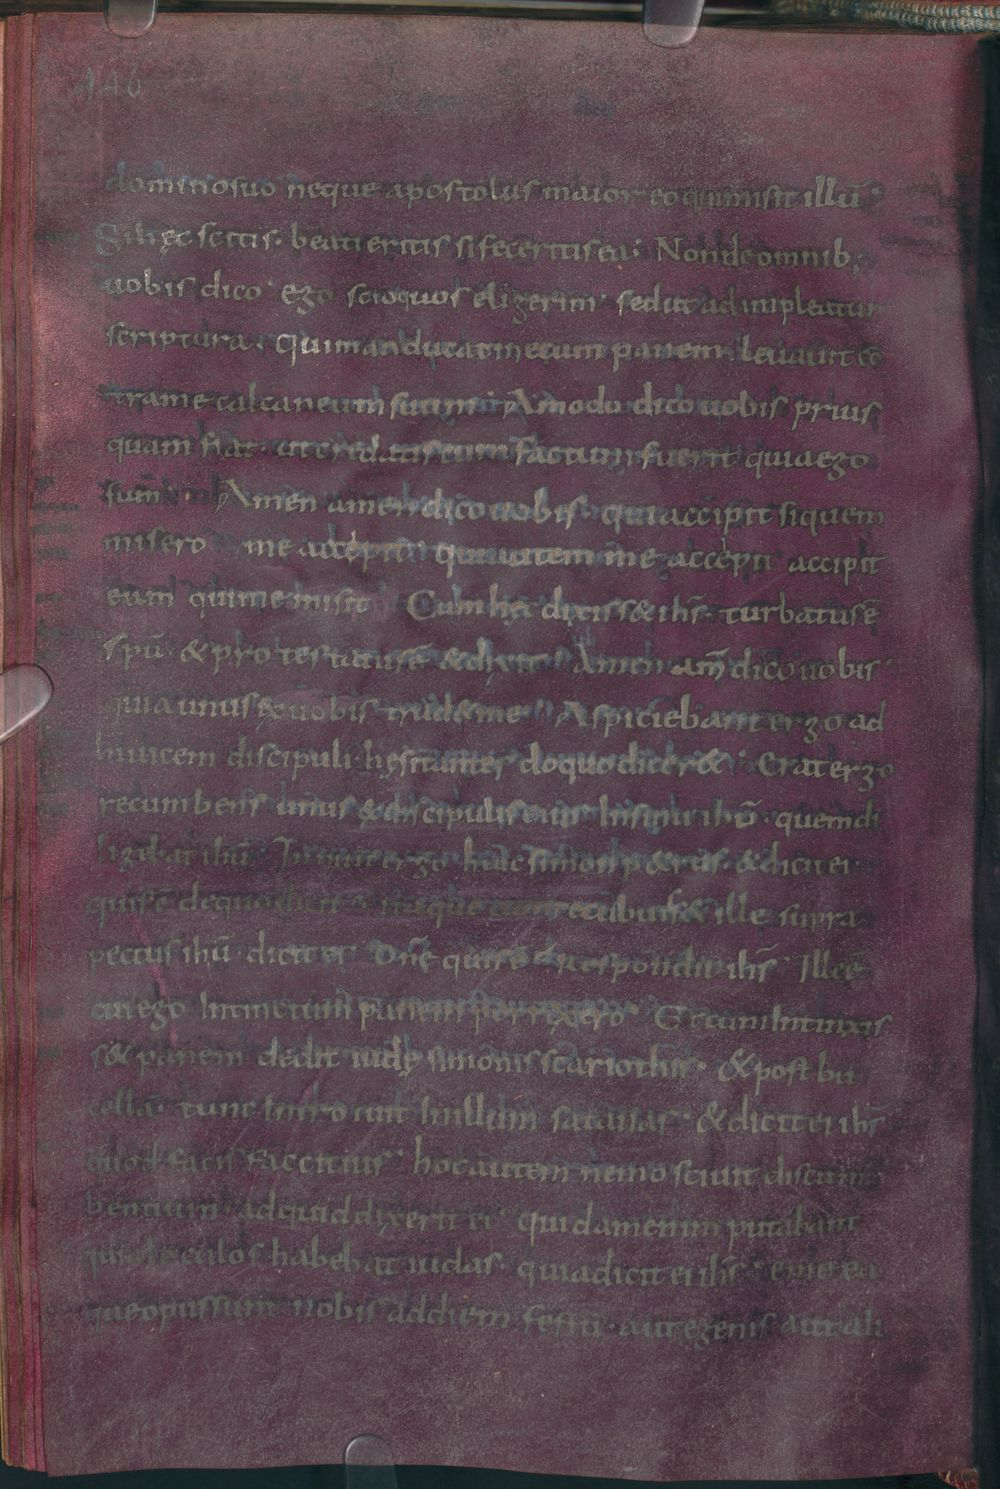 146
domino suo neque apostolus maior eo qui misit illū·
Si hęc scitis· beati eritis si feceritis ea· Non de omnib;
uobis dico· ego scio quos eligerim· sed ut adimpleatur
scriptura· qui manducat mecum panem leuauit cō
tra me calcaneum suum· Amodo dico uobis prius
quam fiat· ut credatis cum factum fuerit quia ego
sum· Amen amen dico uobis· qui accipit si quem
misero me accipit· qui autem me accepit accipit
eum qui me misit Cum hęc dixiss& ihs· turbatus ē
spū· & protestatus ē & dixit· Amen am̄ dico uobis·
quia unus ex uobis trad& me· Aspiciebant ergo ad
inuicem discipuli· hęsitantes do quo dicer&· Erat ergo
recumbens unus & discipulis eius in sinu ihū· quem di
ligebat ihs̄· Innuit ergo huic simon p&rus· & dicit ei·
quis ē de quo dicit· itaque cum recubuiss& ille supra
pectus ihū· dicit ei· Dn̄e quis ē· Respondit ihs̄· Ille ē
cui ego intinctum panem porrexero· Et cum intinxis
s& panem· dedit iudę simonis scariothis· & post bu
cella· tunc intro iuit in illum satanas· & dicit ei ihs̄
quod facis fac citius· hoc autem nemo sciuit discum
bentium· ad quid dixerit ei· quidam enim putabant
quia loculos habebat iudas· quia dicit ei ihs̄· eme ea
que opus sunt nobis ad diem festū· aut egenis aut ali